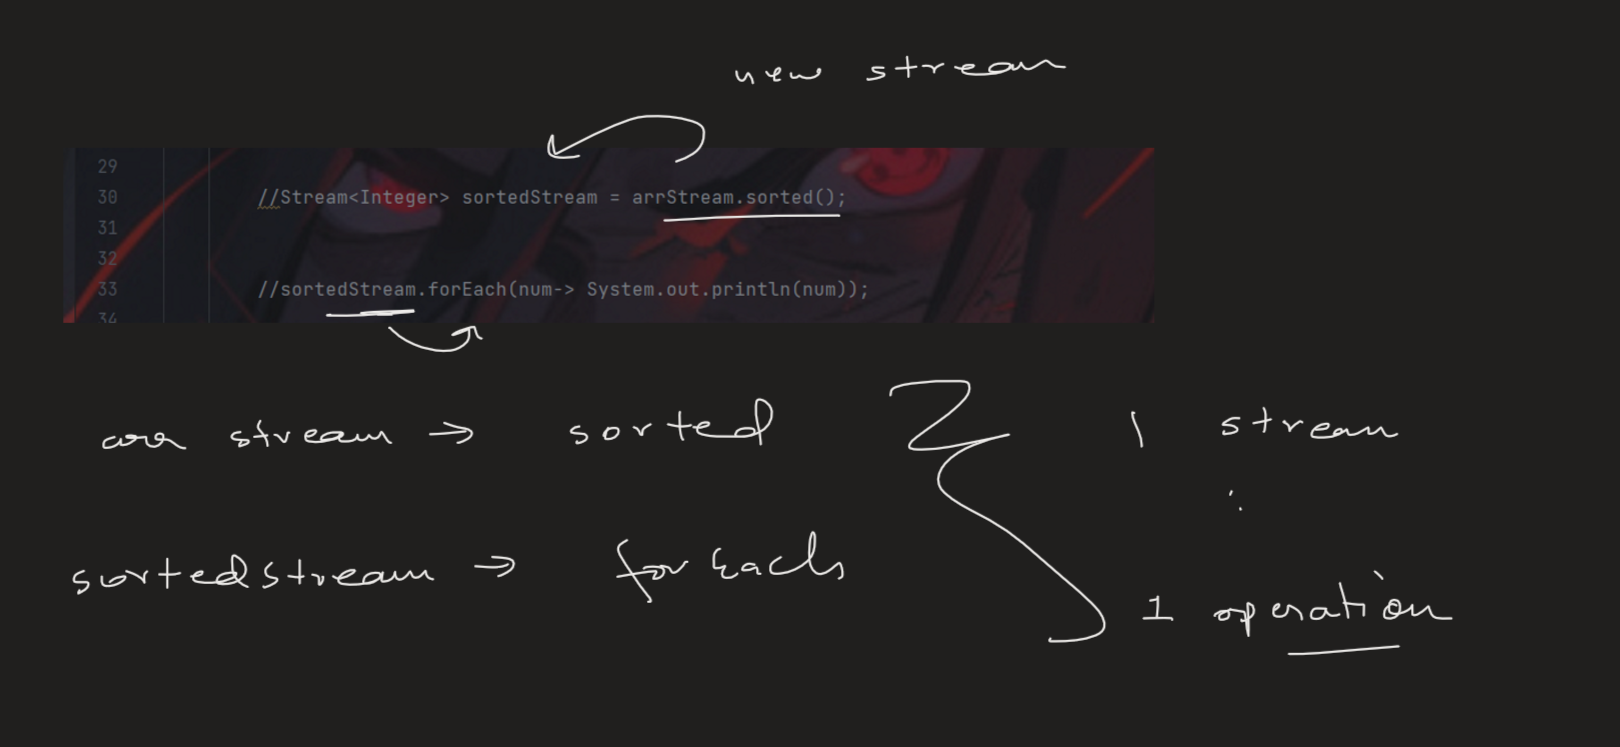 new stream
29
30 //Stream<Integer> sortedStream = arrStream.sorted();
31
32
33 //sortedStream.forEach(num-> System.out.println(num));
34
arr stream → sorted
1 stream
:
sortedstream → for Each
1 operation